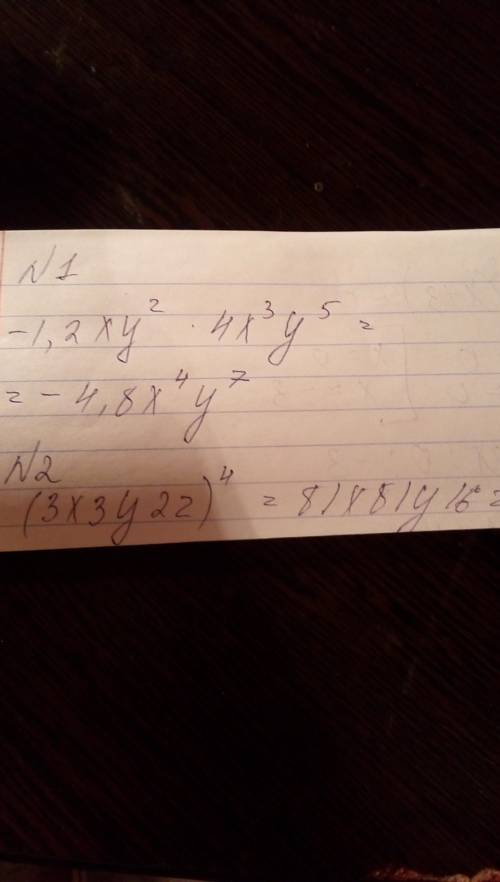 N1
-1,2xy² · 4x³y⁵ =
= -4,8x⁴y⁷
N2
(3x3y2z)⁴ = 81x81y16z